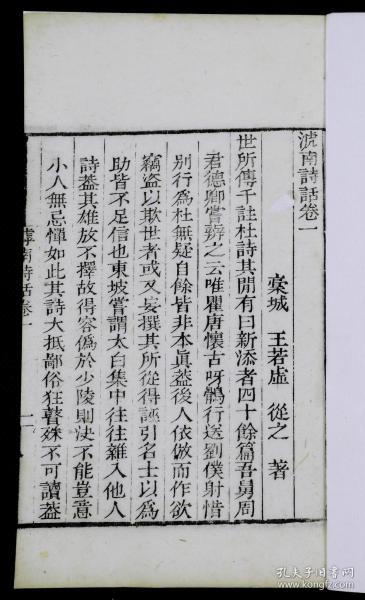 滹南詩話卷一
槀城　王若虛　從之　著
世所傳千註杜詩其閒有曰新添者四十餘篇吾舅周
君德卿嘗辨之云唯瞿唐懷古呀鶻行送劉僕射惜
別行爲杜無疑自餘皆非本眞葢後人依倣而作欲
竊盜以欺世者或又妄撰其所從得誣引名士以爲
助皆不足信也東坡嘗謂太白集中往往雜入他人
詩葢其雄放不擇故得容僞於少陵則決不能豈意
小人無忌憚如此其詩大抵鄙俗狂瞽殊不可讀葢
滹南詩話卷一
一
孔夫子旧书网
www.kongfz.com